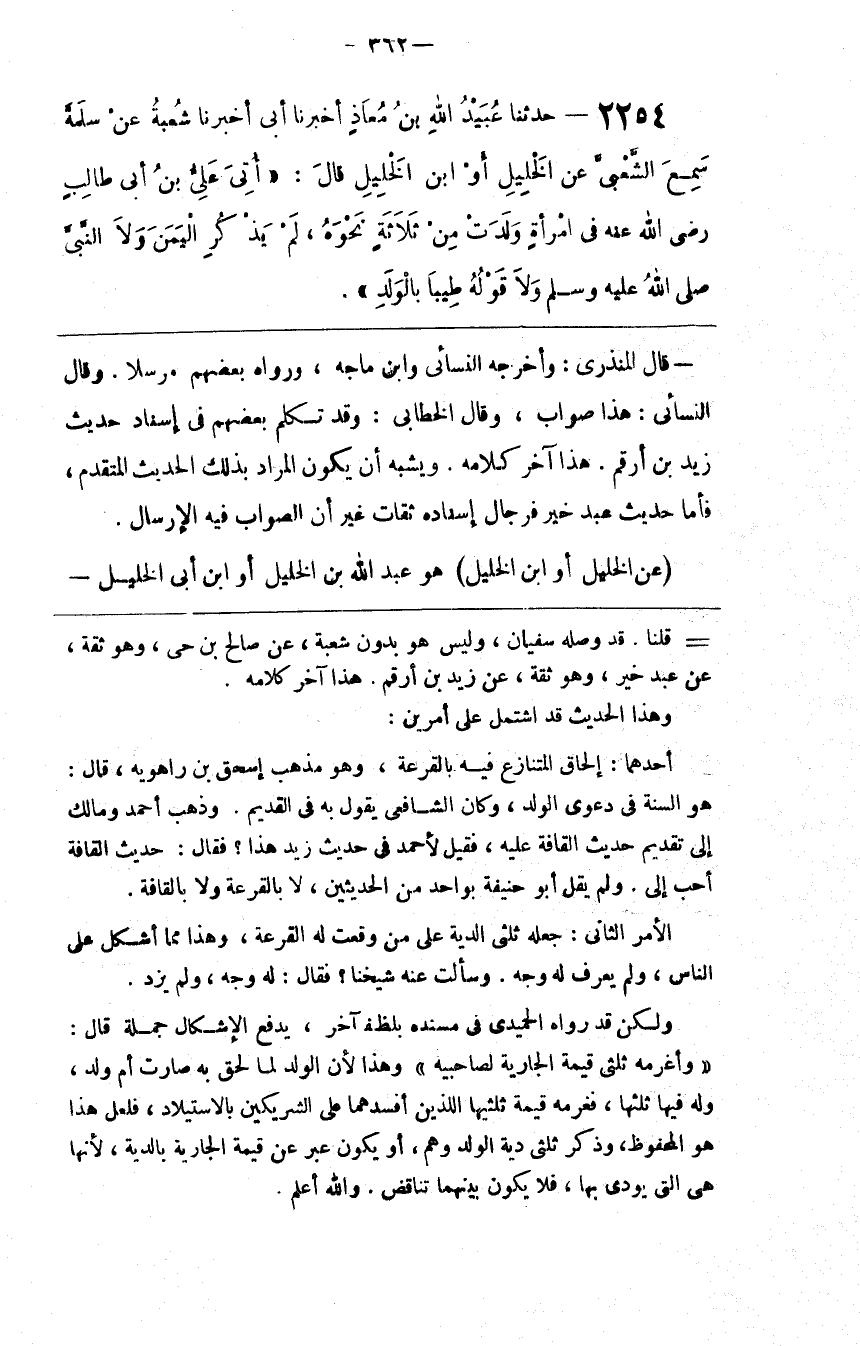 — ٣٦٢ -
٢٢٥٤ — حدثنا عُبَيْدُ اللهِ بنُ مُعَاذٍ أخبرنا أبى أخبرنا شُعبةُ عنْ سلَمَةَ
سَمِعَ الشَّعْبىَّ عن الخَلِيلِ أوْ ابن الخَلِيلِ قالَ : « أُتِىَ عَلِىُّ بنُ أبى طالِبٍ
رضى الله عنه فى امْرأةٍ وَلَدَتْ مِنْ ثَلَاثَةٍ نَحْوَهُ ، لَمْ يَذْ كُرِ الْيَمَنَ وَلاَ النَّبىَّ
صلى اللهُ عليه وسلم وَلاَ قَوْلَهُ طِيباَ بالْوَلَدِ » .
— قال المنذرى : وأخرجه النسائى وابن ماجه ، ورواه بعضهم مرسلا . وقال
النسائى : هذا صواب ، وقال الخطابى : وقد تكلم بعضهم فى إسناد حديث
زيد بن أرقم . هذا آخر كلامه . ويشبه أن يكون المراد بذلك الحديث المتقدم ،
فأما حديث عبد خير فرجال إسناده ثقات غير أن الصواب فيه الإرسال .
(عن الخليل أو ابن الخليل) هو عبد الله بن الخليل أو ابن أبى الخليل —
= قلنا . قد وصله سفيان ، وليس هو بدون شعبة ، عن صالح بن حى ، وهو ثقة ،
عن عبد خير ، وهو ثقة ، عن زيد بن أرقم . هذا آخر كلامه .
وهذا الحديث قد اشتمل على أمرين :
أحدهما : إلحاق المتنازع فيه بالقرعة ، وهو مذهب إسحق بن راهويه ، قال :
هو السنة فى دعوى الولد ، وكان الشافعى يقول به فى القديم . وذهب أحمد ومالك
إلى تقديم حديث القافة عليه ، فقيل لأحمد فى حديث زيد هذا ؟ فقال : حديث القافة
أحب إلى . ولم يقل أبو حنيفة بواحد من الحديثين ، لا بالقرعة ولا بالقافة .
الأمر الثانى : جعله ثلثى الدية على من وقعت له القرعة ، وهذا مما أشكل على
الناس ، ولم يعرف له وجه . وسألت عنه شيخنا ؟ فقال : له وجه ، ولم يزد .
ولكن قد رواه الحميدى فى مسنده بلظف آخر ، يدفع الإشكال جملة قال :
« وأغرمه ثلثى قيمة الجارية لصاحبيه » وهذا لأن الولد لما لحق به صارت أم ولد ،
وله فيها ثلثها ، فغرمه قيمة ثلثيها اللذين أفسدهما على الشريكين بالاستيلاد ، فلعل هذا
هو المحفوظ، وذكر ثلثى دية الولد وهم ، أو يكون عبر عن قيمة الجارية بالدية ، لأنها
هى التى يودى بها ، فلا يكون بينهما تناقض . والله أعلم .